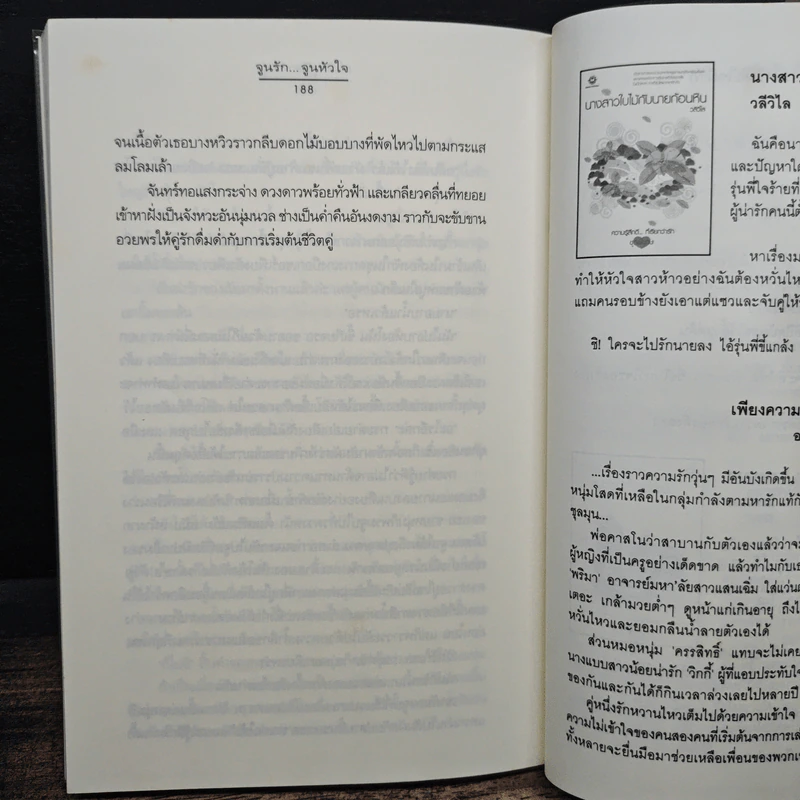 จูนรัก...จูนหัวใจ
188
จนเนื้อตัวเธอบางหวิวราวกลีบดอกไม้บอบบางที่พัดไหวไปตามกระแส
ลมโลมเล้า
จันทร์ทอแสงกระจ่าง ดวงดาวพร้อยทั่วฟ้า และเกลียวคลื่นที่ทยอย
เข้าหาฝั่งเป็นจังหวะอันนุ่มนวล ช่างเป็นค่ำคืนอันงดงาม ราวกับจะขับขาน
อวยพรให้คู่รักดื่มด่ำกับการเริ่มต้นชีวิตคู่
นางสาวใบไม้กับนายก้อนหิน
วลีวิไล
ความรู้สึกดี... ที่เรียกว่ารัก
นางสาว
วลีวิไล
ฉันคือนา
และปัญหาใด
รุ่นพี่ใจร้ายที่
ผู้น่ารักคนนี้ต้
หาเรื่องม
ทำให้หัวใจสาวห้าวอย่างฉันต้องหวั่นไห
แถมคนรอบข้างยังเอาแต่แซวและจับคู่ให้
ชิ! ใครจะไปรักนายลง ไอ้รุ่นพี่ขี้แกล้ง
เพียงความ
...เรื่องราวความรักวุ่นๆ มีอันบังเกิดขึ้น
หนุ่มโสดที่เหลือในกลุ่มกำลังตามหารักแท้กั
ชุลมุน...
พ่อคาสโนว่าสาบานกับตัวเองแล้วว่าจะ
ผู้หญิงที่เป็นครูอย่างเด็ดขาด แล้วทำไมกับเธ
'พริมา' อาจารย์มหา'ลัยสาวแสนเฉิ่ม ใส่แว่น
เตอะ เกล้ามวยต่ำๆ ดูหน้าแก่เกินอายุ ถึงไ
หวั่นไหวและยอมกลืนน้ำลายตัวเองได้
ส่วนหมอหนุ่ม 'ครรสิทธิ์' แทบจะไม่เคย
นางแบบสาวน้อยน่ารัก 'วิกกี้' ผู้ที่แอบประทับใจ
ของกันและกันได้ก็กินเวลาล่วงเลยไปหลายปี
คู่หนึ่งรักหวานไหวเต็มไปด้วยความเข้าใจ
ความไม่เข้าใจของคนสองคนที่เริ่มต้นจากการเล
ทั้งหลายจะยื่นมือมาช่วยเหลือเพื่อนของพวกเข